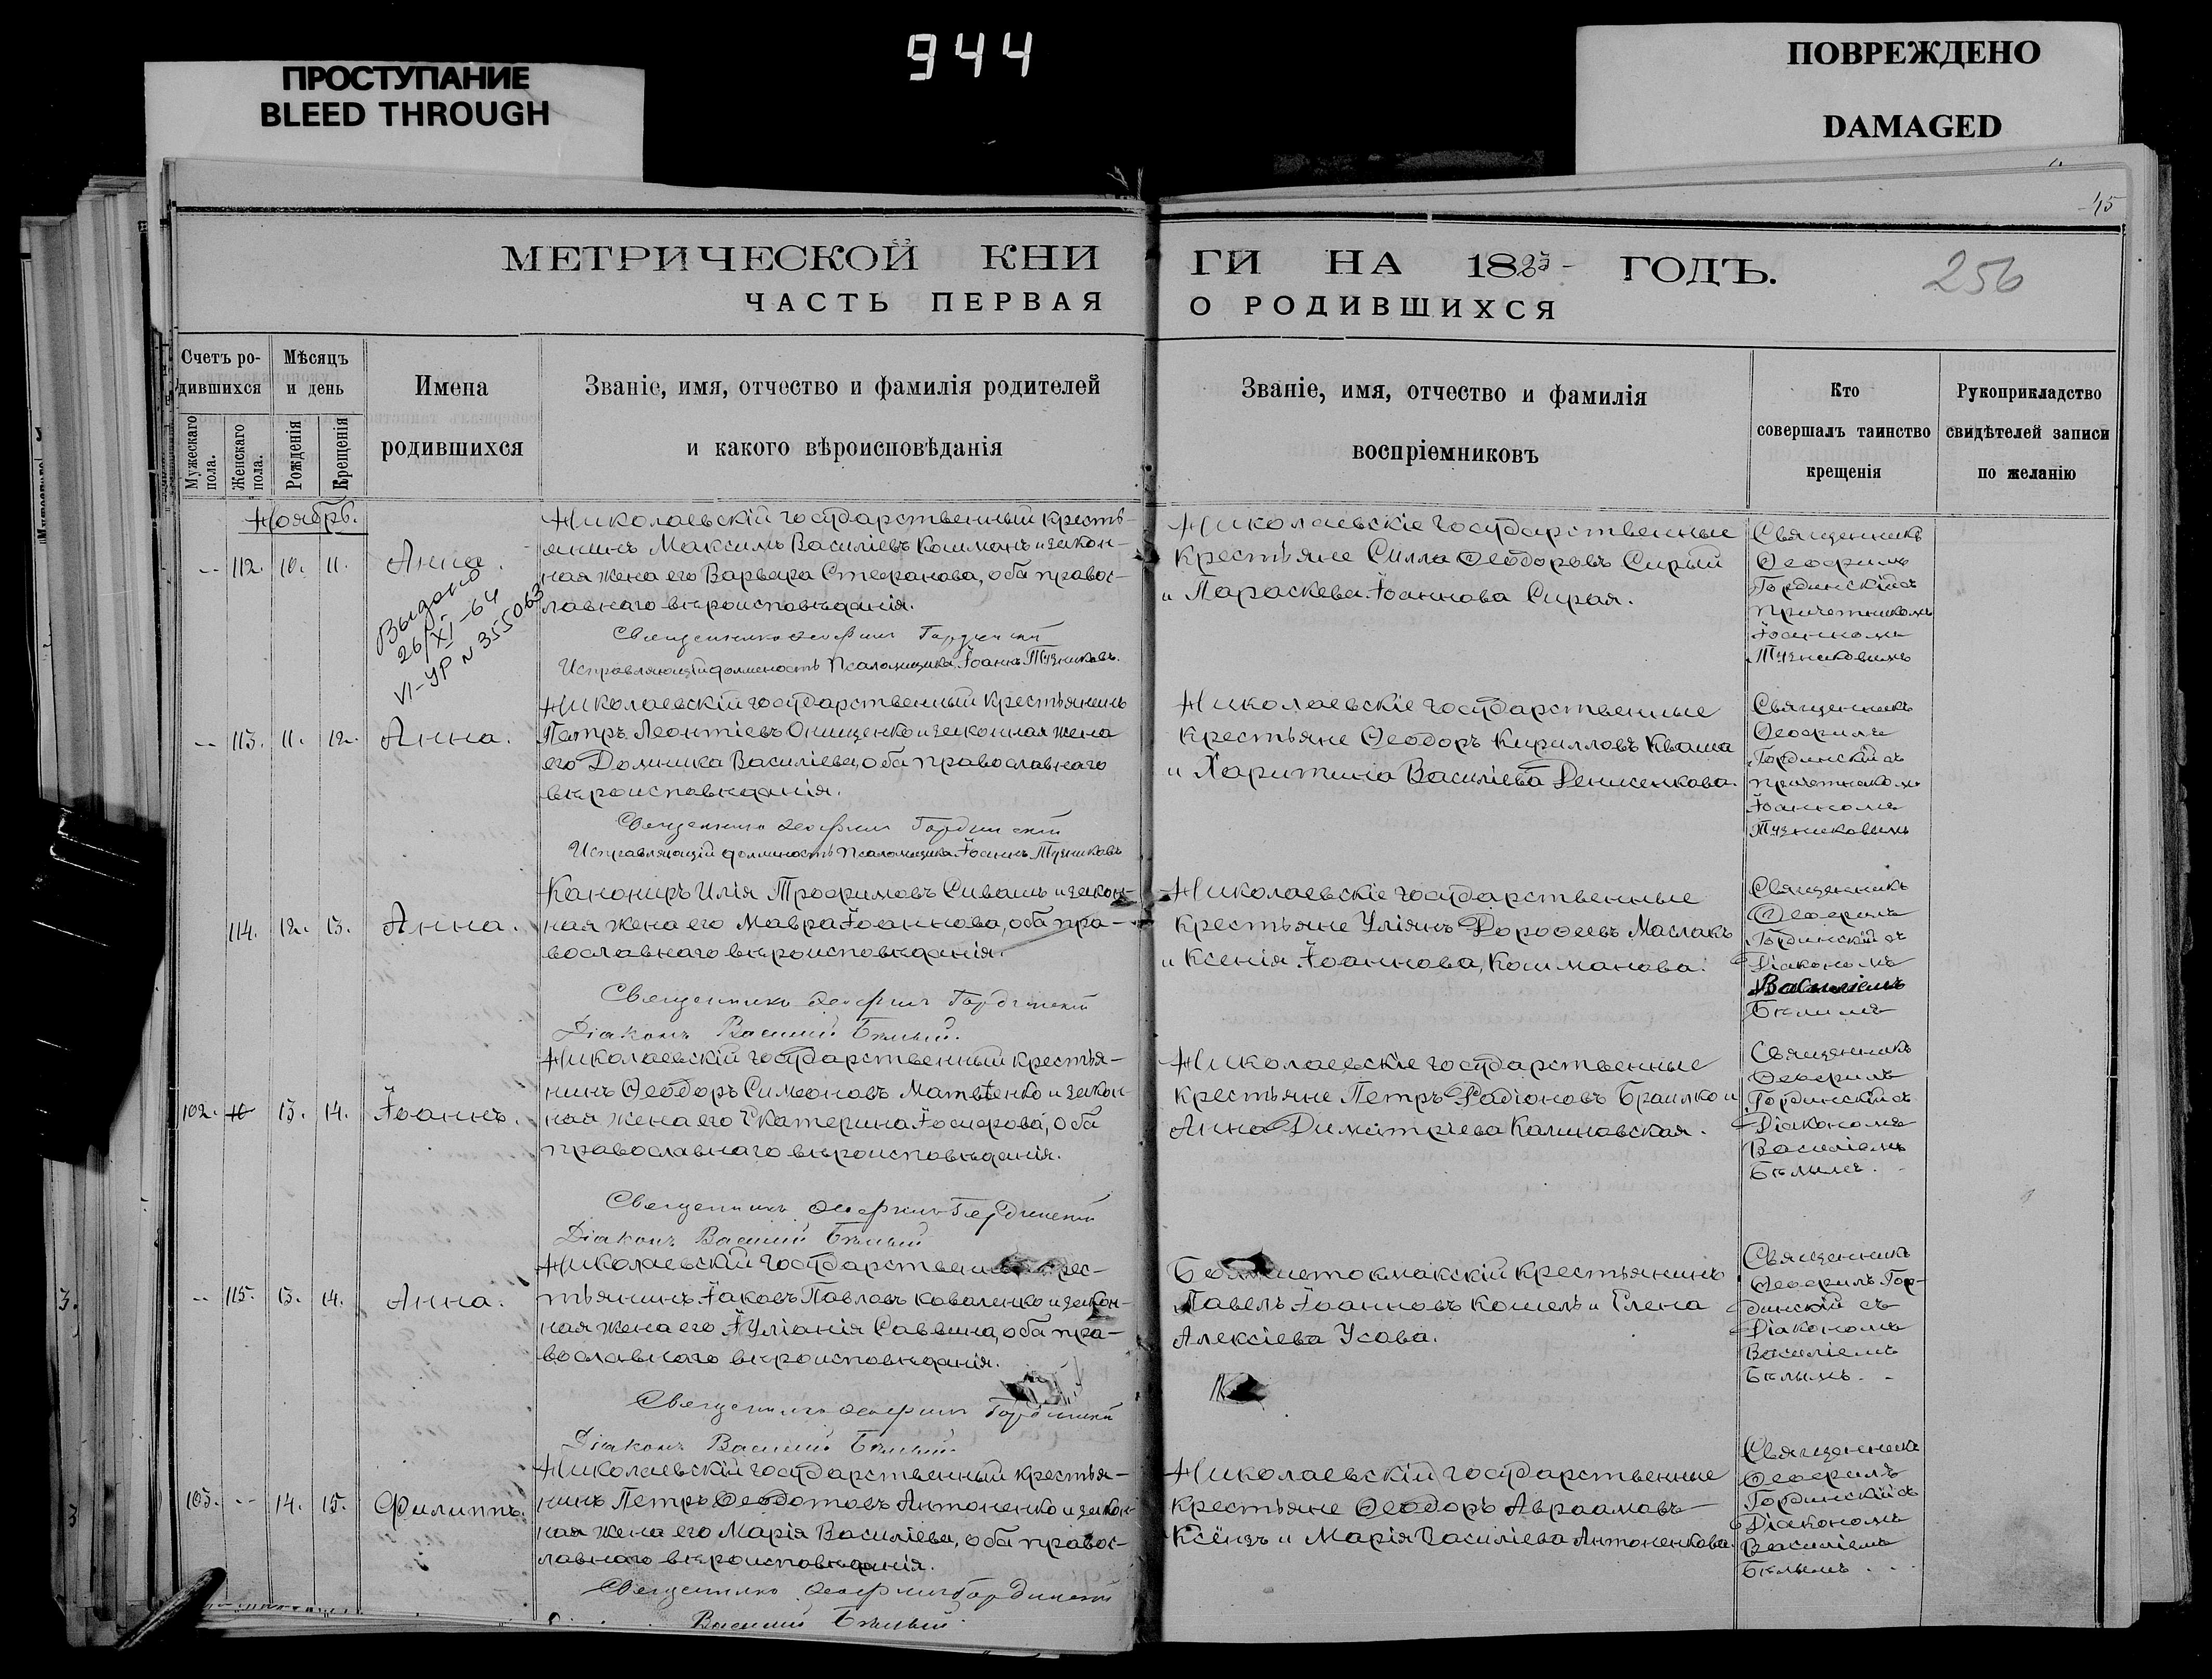 944
ПРОСТУПАНИЕ
BLEED THROUGH
ПОВРЕЖДЕНО
DAMAGED
45
МЕТРИЧЕСКОЙ КНИ
ГИ НА 18 ГОДЪ.
256
ЧАСТЬ ПЕРВАЯ
О РОДИВШИХСЯ
Счетъ ро-
дившихся
Мѣсяцъ
и день
Имена
родившихся
Званіе, имя, отчество и фамилія родителей
и какого вѣроисповѣданія
Званіе, имя, отчество и фамилія
воспріемниковъ
Кто
совершалъ таинство
крещенія
Рукоприкладство
свидѣтелей записи
по желанію
Мужескаго
пола.
Женскаго
пола.
Рожденія
Крещенія
Ноябрь.
-- 112. 10. 11. Анна.
Выдано
26/XI-64
VI-УР N 355063
Николаевскій государственный кресть-
янинъ Максимъ Василіевъ Кошманъ и закон-
ная жена его Варвара Стефанова, оба правос-
лавнаго вѣроисповѣданія.
Священникъ Ѳеофилъ Гординскій
Исправляющій должность Псаломщика Іоаннъ Тузниковъ.
Николаевскіе государственные
крестьяне Силла Ѳеодоровъ Сирый
и Параскева Іоаннова Сирая.
Священникъ
Ѳеофилъ
Гординскій съ
причетникомъ
Іоанномъ
Тузниковымъ
-- 113. 11. 12. Анна.
Николаевскій государственный крестьянинъ
Петръ Леонтіевъ Онищенко и законная жена
его Домника Василіева, оба православнаго
вѣроисповѣданія.
Священникъ Ѳеофилъ Гординскій
Исправляющій должность Псаломщика Іоаннъ Тузниковъ
Николаевскіе государственные
крестьяне Ѳеодоръ Кирилловъ Кваша
и Харитина Василіева Денисенкова.
Священникъ
Ѳеофилъ
Гординскій съ
причетникомъ
Іоанномъ
Тузниковымъ
114. 12. 13. Анна.
Канониръ Илія Трофимовъ Сивашъ и закон-
ная жена его Мавра Іоаннова, оба пра-
вославнаго вѣроисповѣданія.
Священникъ Ѳеофилъ Гординскій
Діаконъ Василий Бѣлый.
Николаевскіе государственные
крестьяне Уліянъ Дороѳеевъ Маслакъ
и Ксенія Іоаннова Кошманова.
Священникъ
Ѳеофилъ
Гординскій съ
Діакономъ
Василіемъ
Бѣлымъ
102. 13. 14. Іоаннъ.
Николаевскій государственный крестья-
нинъ Ѳеодоръ Симеоновъ Матвѣенко и закон-
ная жена его Екатерина Іосифова, оба
православнаго вѣроисповѣданія.
Священникъ Ѳеофилъ Гординскій
Діаконъ Василий Бѣлый
Николаевскіе государственные
крестьяне Петръ Родіоновъ Браилко и
Анна Димитріева Калиновская.
Священникъ
Ѳеофилъ
Гординскій съ
Діакономъ
Василіемъ
Бѣлымъ.
-- 115. 13. 14. Анна.
Николаевскій государственный крес-
тьянинъ Іаковъ Павловъ Коваленко и закон-
ная жена его Іуліанія Саввина, оба пра-
вославнаго вѣроисповѣданія.
Священникъ Ѳеофилъ Гординскій
Діаконъ Василий Бѣлый
Большетокмакскій крестьянинъ
Павелъ Іоанновъ Кошель и Елена
Алексіева Усова.
Священникъ
Ѳеофилъ Гор-
динскій съ
Діакономъ
Василіемъ
Бѣлымъ.
103. -- 14. 15. Филиппъ.
Николаевскій государственный крестья-
нинъ Петръ Ѳеодотовъ Антоненко и закон-
ная жена его Марія Василіева, оба правос-
лавнаго вѣроисповѣданія.
Священникъ Ѳеофилъ Гординскій
Василий Бѣлый
Николаевскій государственные
крестьяне Ѳеодоръ Авраамовъ
Ксёнзъ и Марія Василіева Антоненкова.
Священникъ
Ѳеофилъ
Гординскій съ
Діакономъ
Василіемъ
Бѣлымъ.